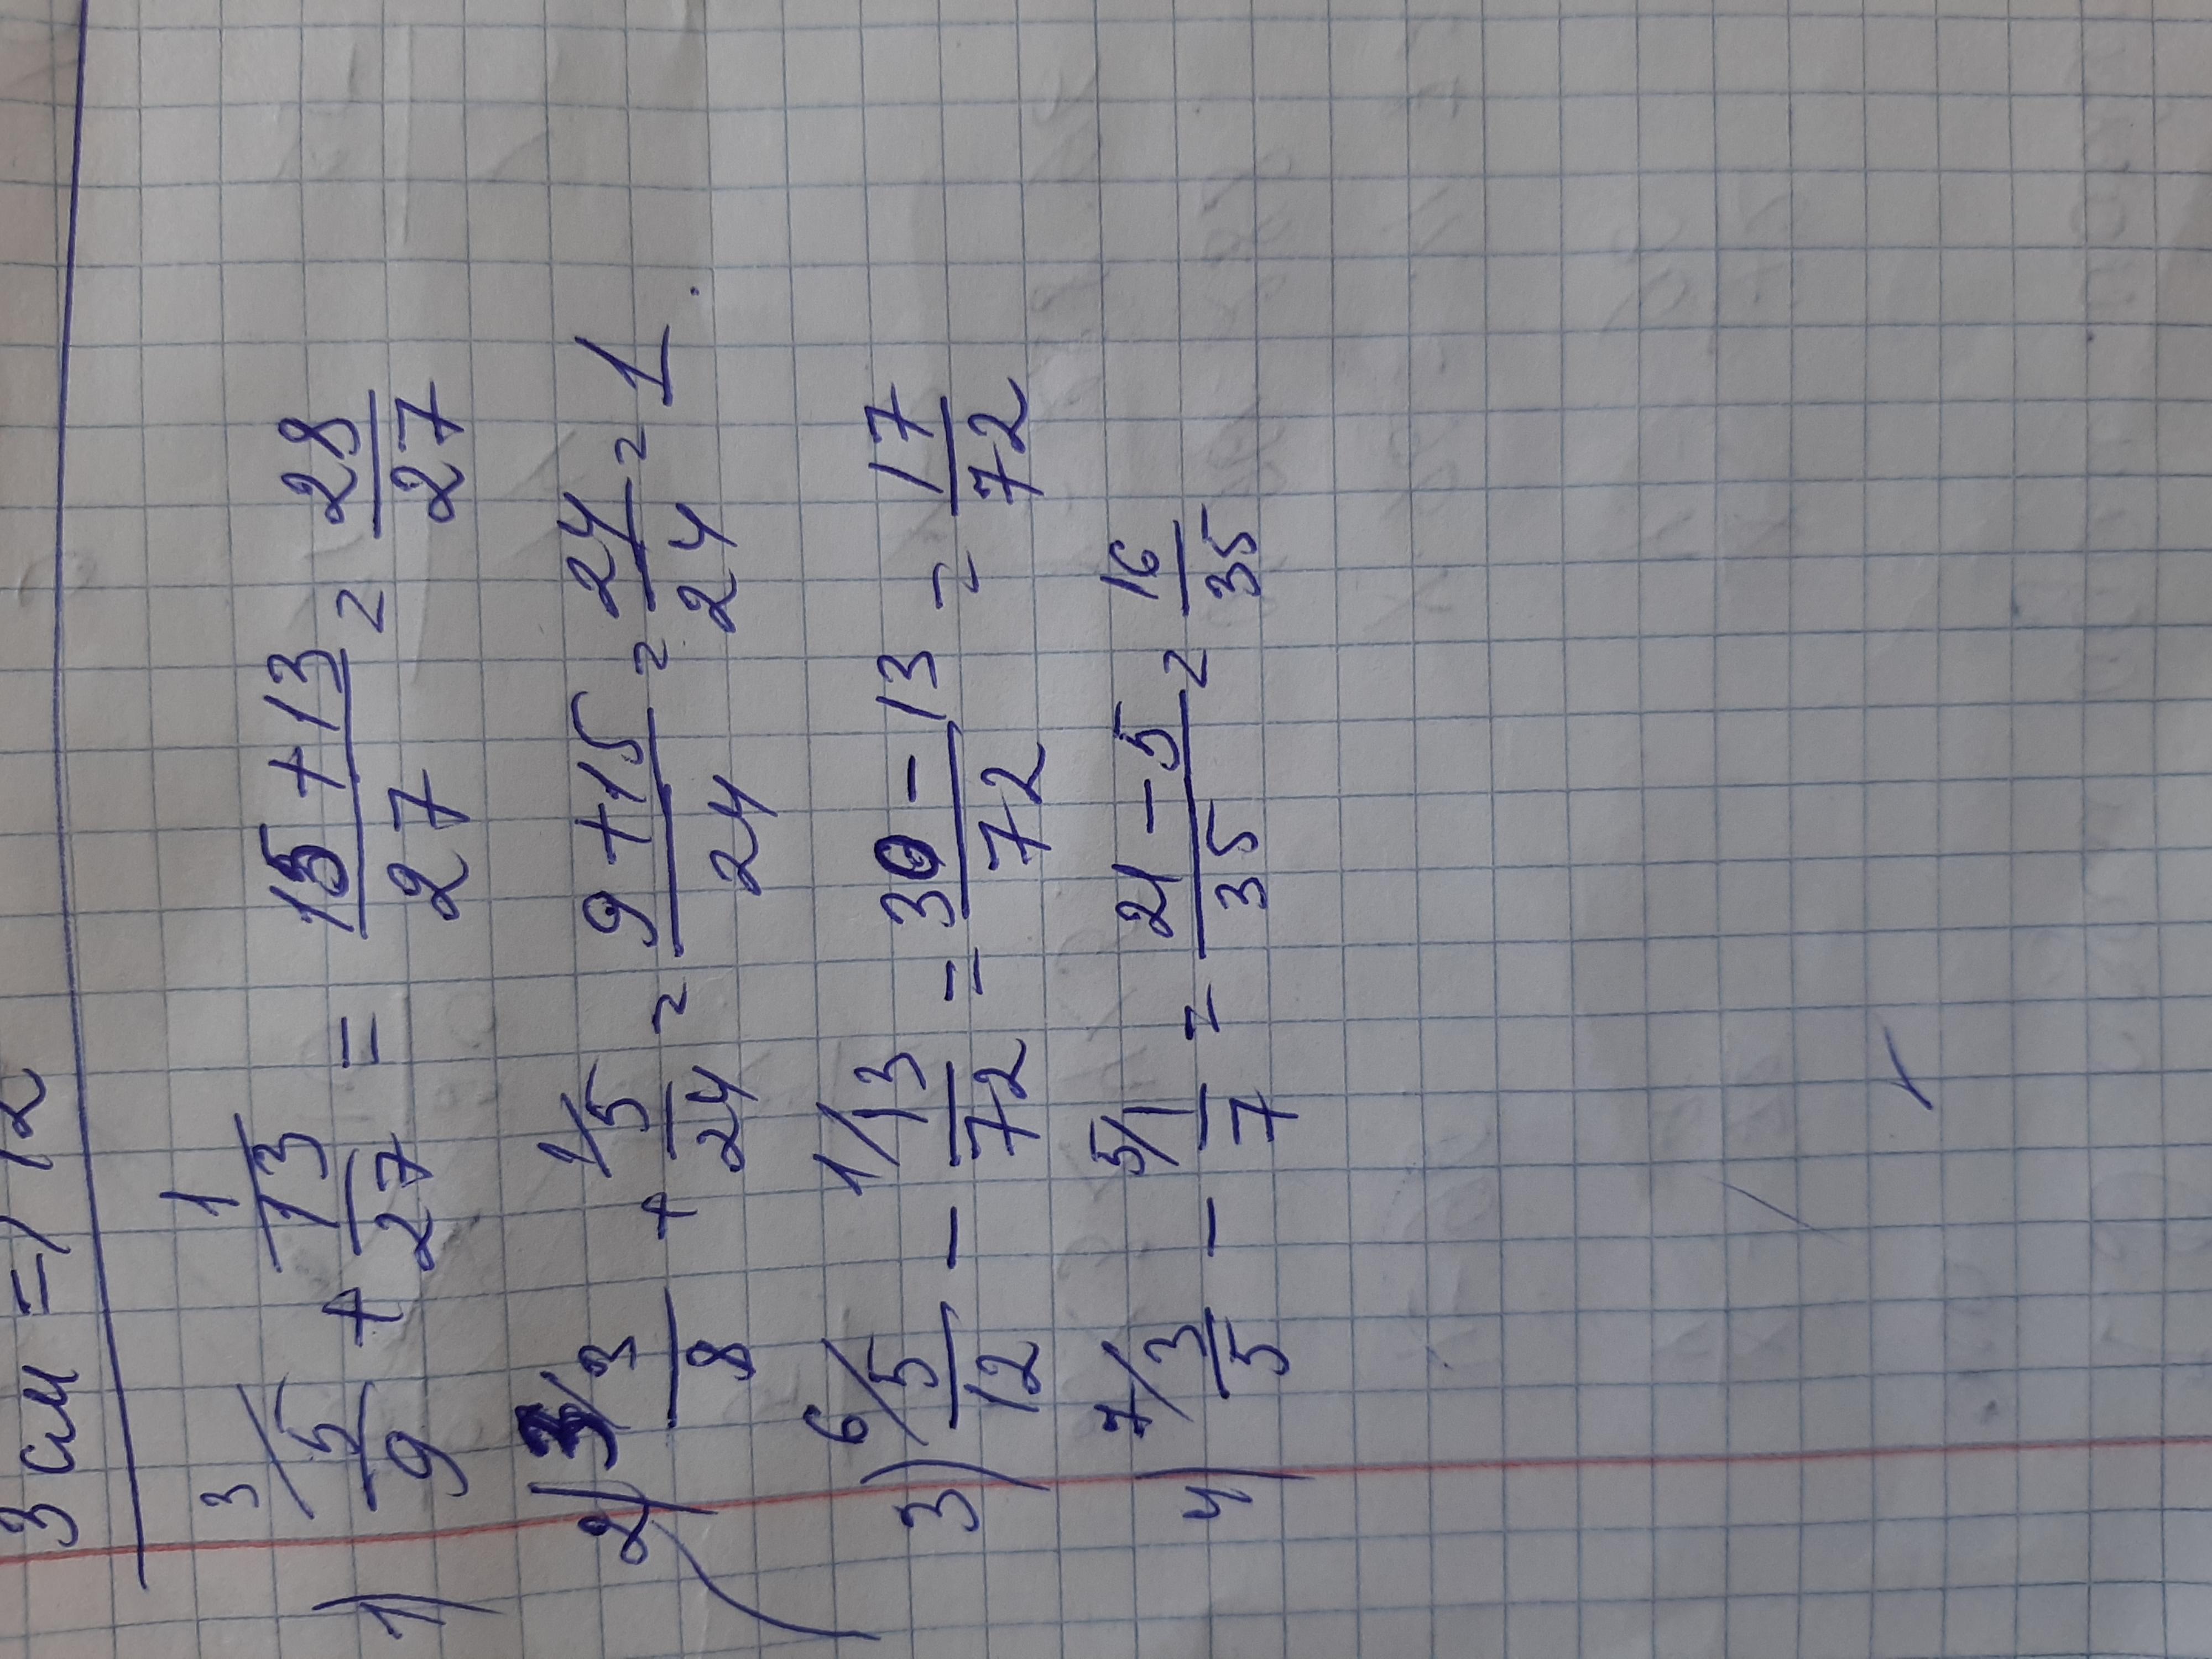 3 см =) 12
1) 3/ 5/9 + 1/ 13/27 = 15+13/27 = 28/27
2) 3/ 3/8 + 1/ 15/24 = 9+15/24 = 24/24 = 1.
3) 6/ 5/12 - 1/ 13/72 = 30-13/72 = 17/72
4) 7/ 3/5 - 5/ 1/7 = 21-5/35 = 16/35